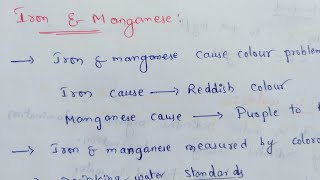 Iron & Manganese:
→ Iron & manganese cause colour problem
Iron cause → Reddish colour
Manganese cause → Purple to
→ Iron & manganese measured by
water standards